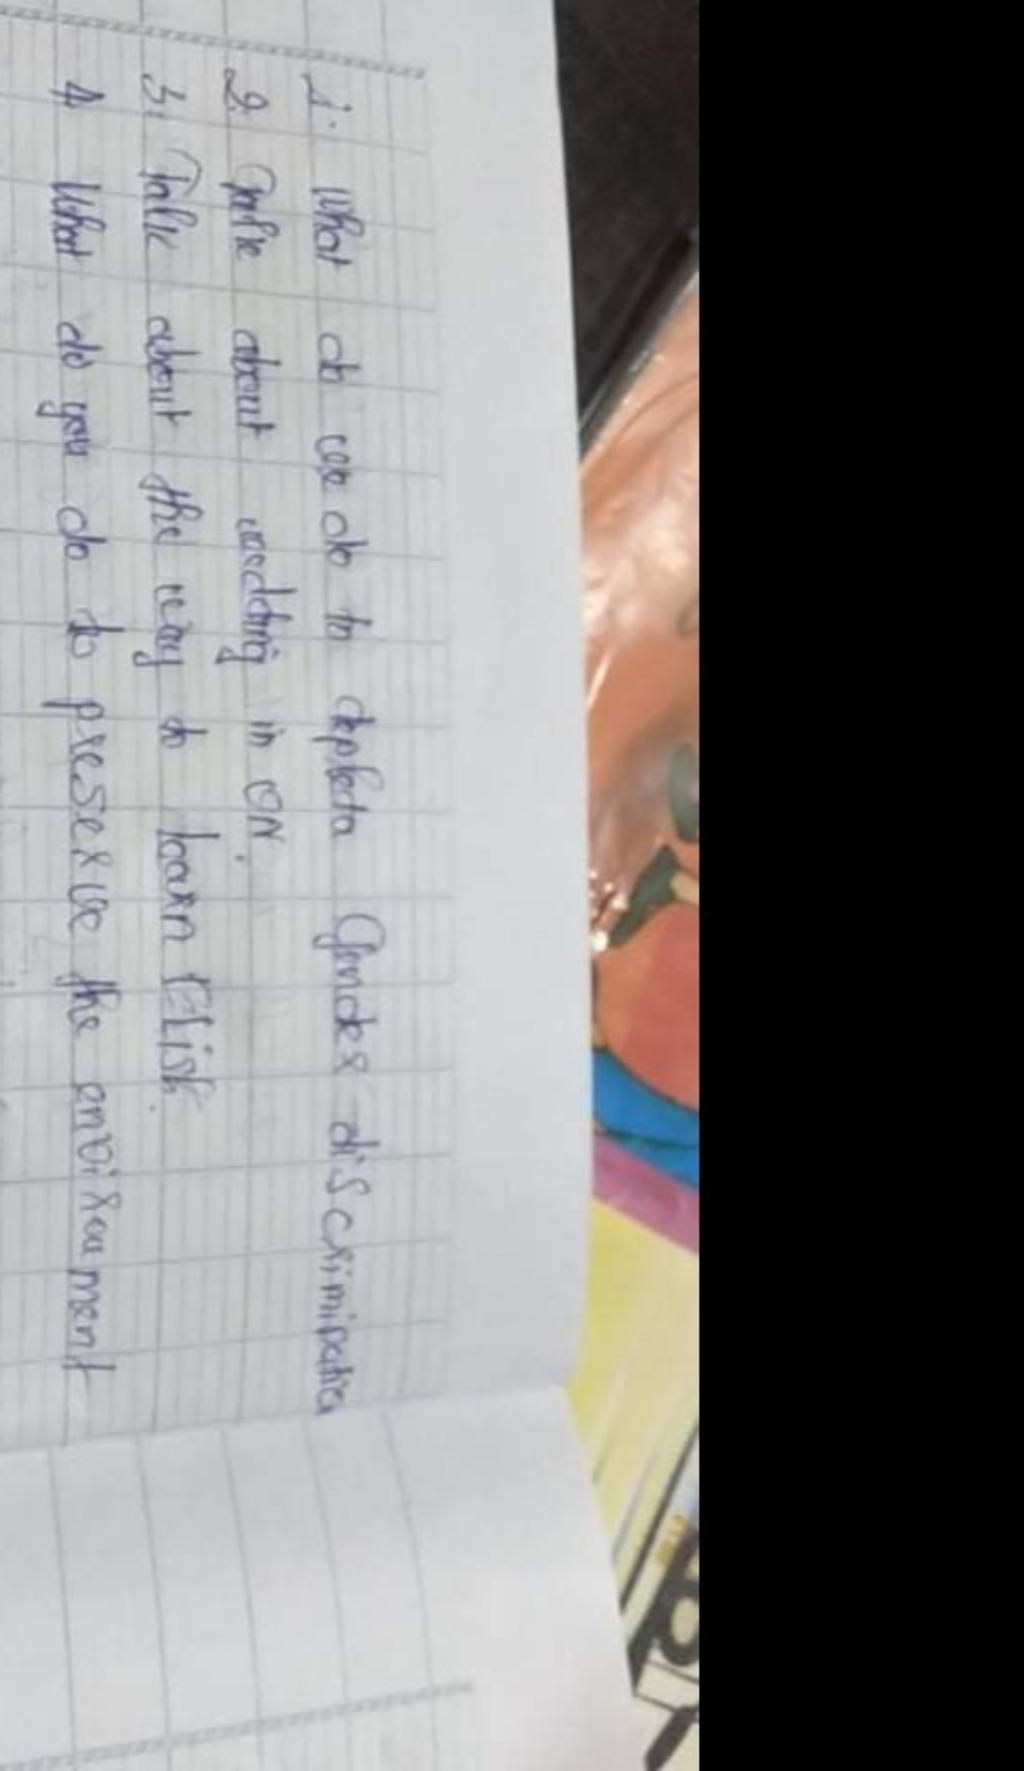 1. What do we do to depleta Gender discrimination
2. Talk about wedding in VN.
3. Talk about the way to learn E
4 What do you do to preserve the enviroument